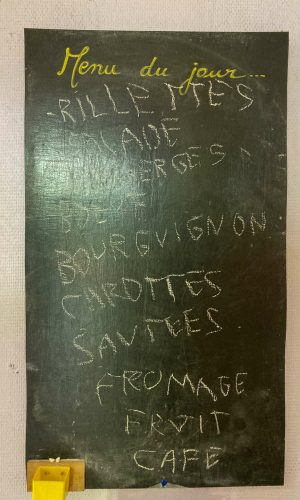 Menu du jour...
-RILLETTES
SALADE
BOEUF
BOURGUIGNON
CAROTTES
SAUTEES
FROMAGE
FRUIT
CAFE